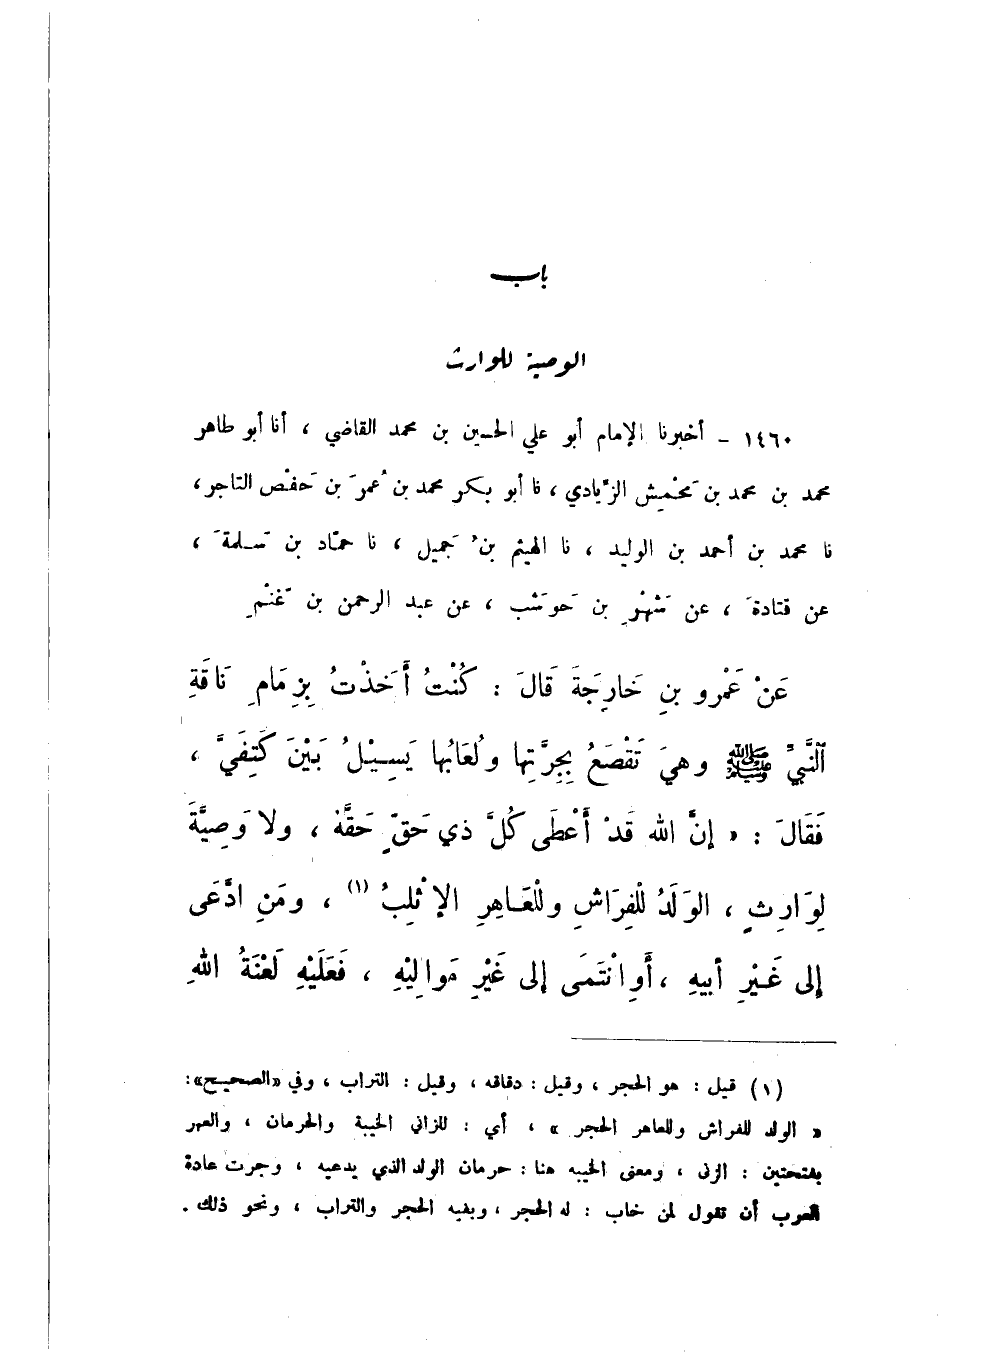 باب
الوصية للوارث
١٤٦٠ - أخبرنا الإمام أبو علي الحسين بن محمد القاضي ، أنا أبو طاهر
محمد بن محمد بن مَحْمِش الزِّيادي ، نا أبو بكر محمد بن عُمرَ بن حَفْص التاجر ،
نا محمد بن أحمد بن الوليد ، نا الهيثم بنُ جَميل ، نا حمّاد بن سَلمةَ ،
عن قتادةَ ، عن شَهْرِ بن حَوشَب ، عن عبد الرحمن بن غَنْمٍ
عَنْ عَمْرِو بنِ خَارِجَةَ قَالَ : كُنْتُ أَخَذْتُ بِزِمَامِ نَاقَةِ
ٱلنَّبِيِّ ﷺ وهيَ تَقْصَعُ بِجِرَّتِها ولُعَابُها يَسِيْلُ بَيْنَ كَتِفَيَّ ،
فَقَالَ : « إنَّ الله قَدْ أَعْطَى كُلَّ ذي حَقٍّ حَقَّهُ ، ولا وَصِيَّةَ
لِوَارِثٍ ، الوَلَدُ لِلْفِرَاشِ ولِلْعَاهِرِ الإِثْلِبُ (١) ، ومَنِ ادَّعَى
إلى غَيْرِ أبيهِ ، أَوِ انْتَمَى إلى غَيْرِ مَوالِيْهِ ، فَعَلَيْهِ لَعْنَةُ اللهِ
(١) قيل : هو الحجر ، وقيل : دقاقه ، وقيل : التراب ، وفي «الصحيح» :
« الولد للفراش وللعاهر الحجر » ، أي : للزاني الخيبة والحرمان ، والعهر
بفتحتين : الزنى ، ومعنى الخيبه هنا : حرمان الولد الذي يدعيه ، وجرت عادة
العرب أن تقول لمن خاب : له الحجر ، وبفيه الحجر والتراب ، ونحو ذلك .